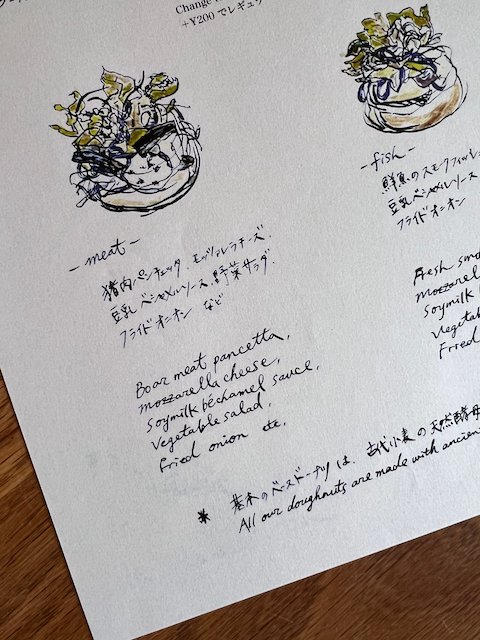 Change
+¥200 でレギュ
-meat-
猪肉パンチェッタ、モッツァレラチーズ、
豆乳ベシャメルソース、野菜サラダ、
フライドオニオン など
Boar meat pancetta,
mozzarella cheese,
Soymilk béchamel sauce,
Vegetable salad,
Fried onion etc,
-fish-
鮮魚のスモークフィッシュ
豆乳ベシャメルソース
フライドオニオン
Fresh smo
mozzarel
Soymilk b
Vegetab
Fried
* 基本のベースドーナツは、古代小麦の天然酵母
All our doughnuts are made with ancien